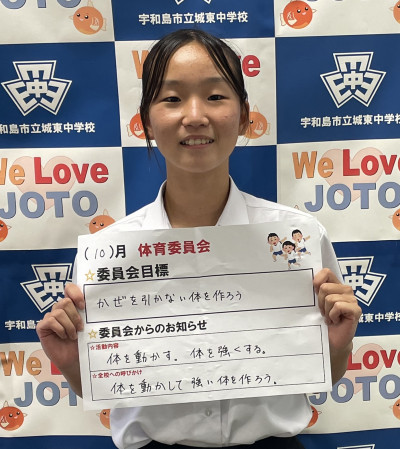 宇和島市立城東中学校
We Love
JOTO
宇和島市立城東中学校
We Love
JOTO
宇和島市立城東中学校
We Love
JOTO
(10)月 体育委員会
☆委員会目標
かぜを引かない体を作ろう
☆委員会からのお知らせ
☆活動内容
体を動かす。体を強くする。
☆全校への呼びかけ
体を動かして強い体を作ろう。
宇和島市立城東中学校
We Love
JOTO